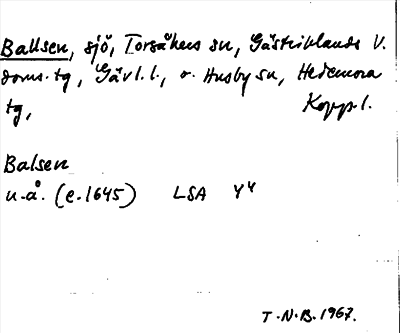 Ballsen, sjö, Torsåkers sn, Gästriklands V.
doms.tg, Gävl.l., o. Husby sn, Hedemora
tg, Kopp.l.
Balsen
u.å. (e.1645) LSA Y4
T.N.B. 1967.